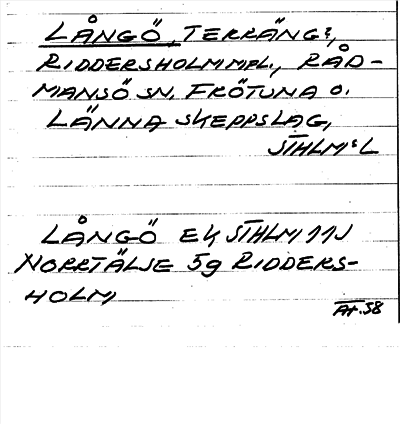 LÅNGÖ, TERRÄNG?,
RIDDERSHOLM MPL., RÅD-
MANSÖ SN. FRÖTUNA O.
LÄNNA SKEPPSLAG,
STHLM:S L
LÅNGÖ EK STHLM 11J
NORRTÄLJE 5g RIDDERS-
HOLM